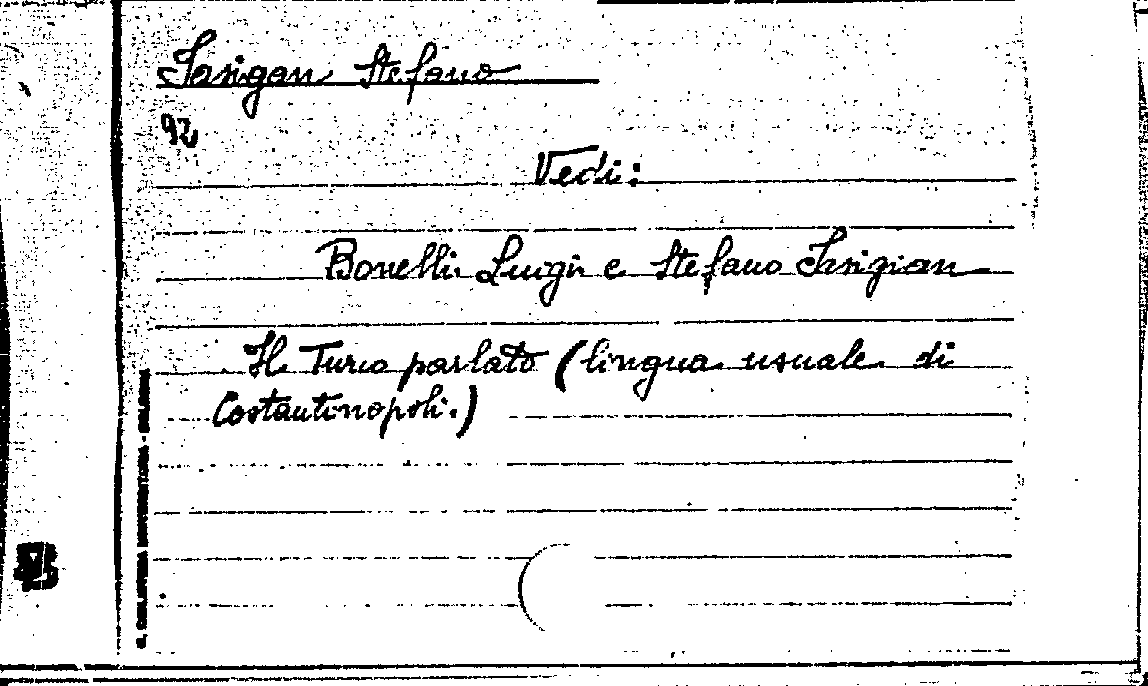 Iasigan Stefano
92
Vedi:
Bonelli Luigi e Stefano Iasigian
Il Turco parlato (lingua usuale di
Costantinopoli.)